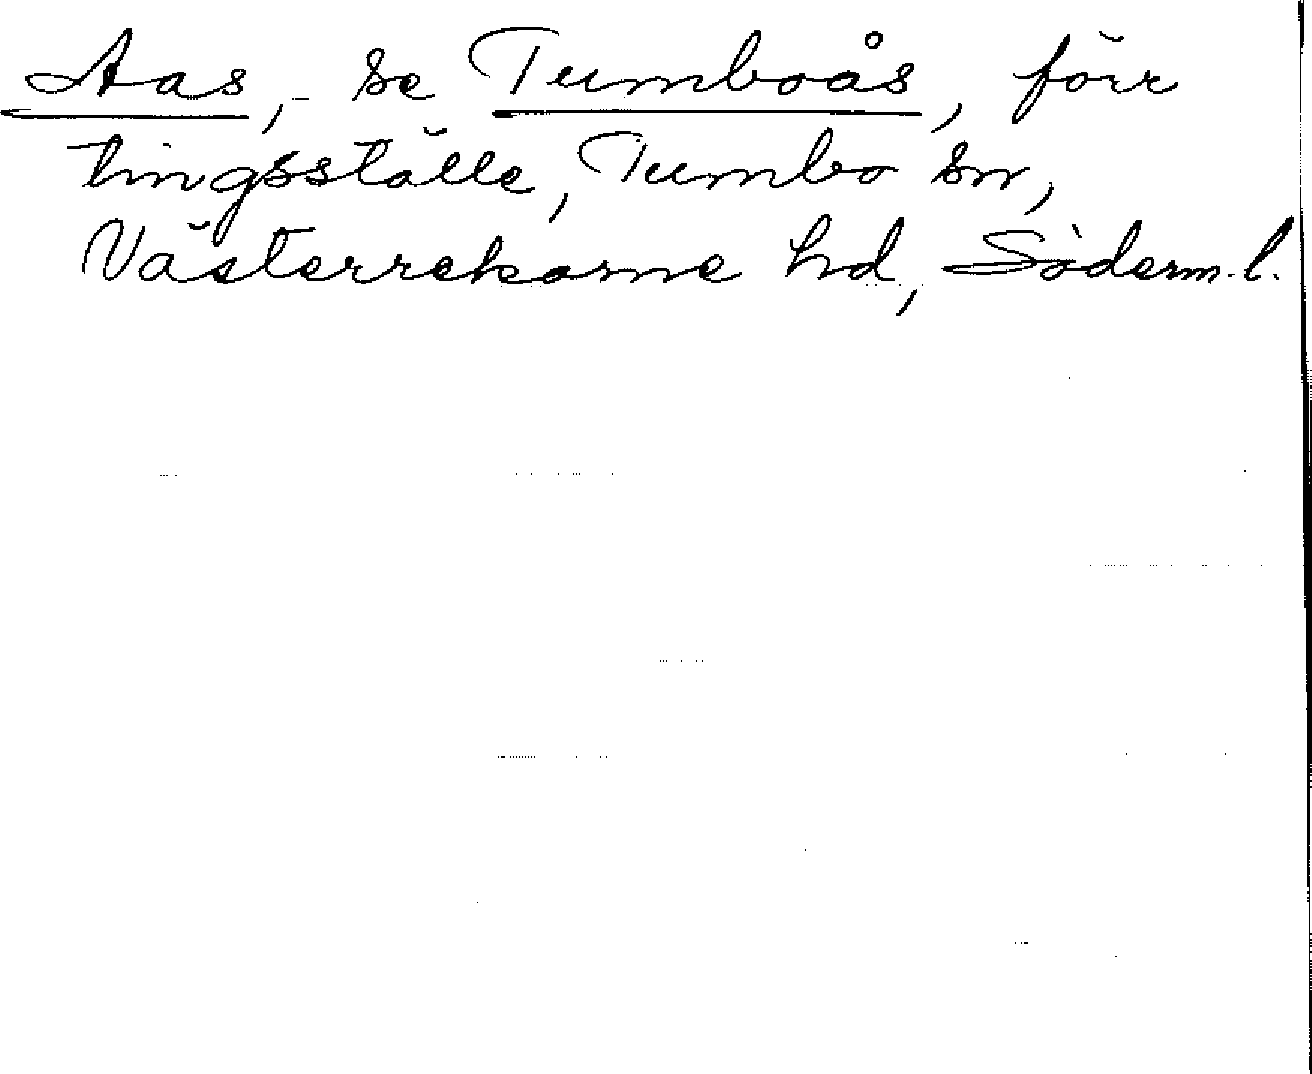 Aas, - se Tumboås, förr
tingsställe, Tumbo sn,
Västerrekarne hd, Söderm. l.